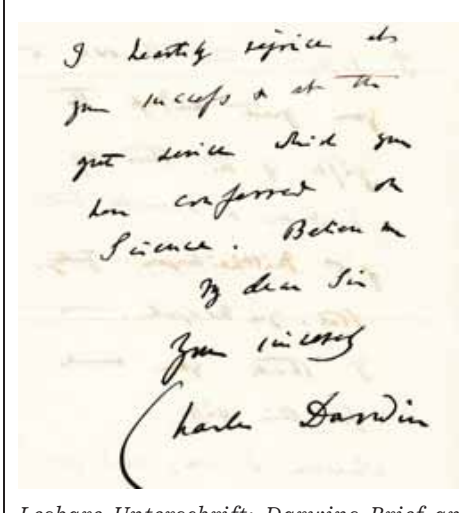 I heartily rejoice at
your success & at the
great service which you
have conferred on
Science. Believe me
My dear Sir
Yours sincerely
Charles Darwin
Lesbare Unterschrift: Darwins Brief an